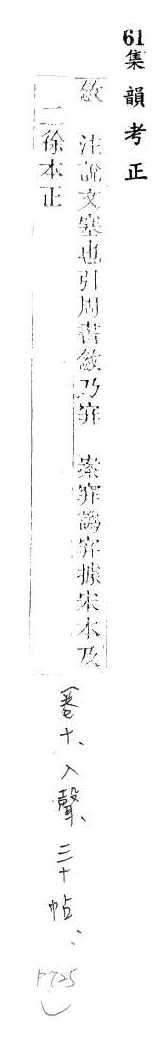 61集韻考正
敜 注說文塞也引周書敜乃穽 案穽譌穽據宋本及
二徐本正
卷十、入聲、三十帖：
P725